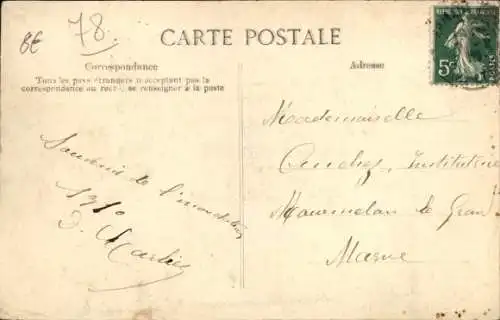 8E 78.
CARTE POSTALE
Correspondance
Tous les pays étrangers n'acceptant pas la
correspondance au recto, se renseigner à la poste
Souvenir de l'inondation
1910
Adresse
5c
Mademoiselle
Institutrice
Mourmelon le Grand
Marne